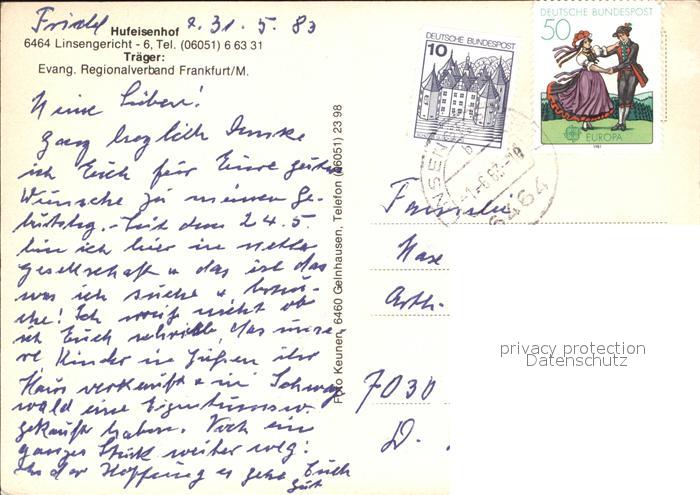 Friedel 2. 31. 5. 83
Hufeisenhof
6464 Linsengericht - 6, Tel. (06051) 6 63 31
Träger:
Evang. Regionalverband Frankfurt/M.
Meine Lieben!
Ganz herzlich Danke
ich Euch für Eure guten
Wünsche zu meinem Ge-
burtstag. Seit dem 24.5.
bin ich hier in netter
Gesellschaft u das ist das
was ich suche u brau-
che! Ich weiß nicht ob
ich Euch schrieb, das unse-
re Kinder in Gießen ihr
Haus verkauft u im Schwarz
wald eine Eigentumsw.
gekauft haben. Noch ein
ganzes Stück weiter weg!
In der Hoffnung es gehe Euch
gut
Foto Keunen, 6460 Gelnhausen, Telefon (06051) 23 98
DEUTSCHE BUNDESPOST
10
DEUTSCHE BUNDESPOST
50
EUROPA
1981
NSEN
-1.-6.83-
6464
Familie
Max
Arth.
7030
D.
privacy protection
Datenschutz